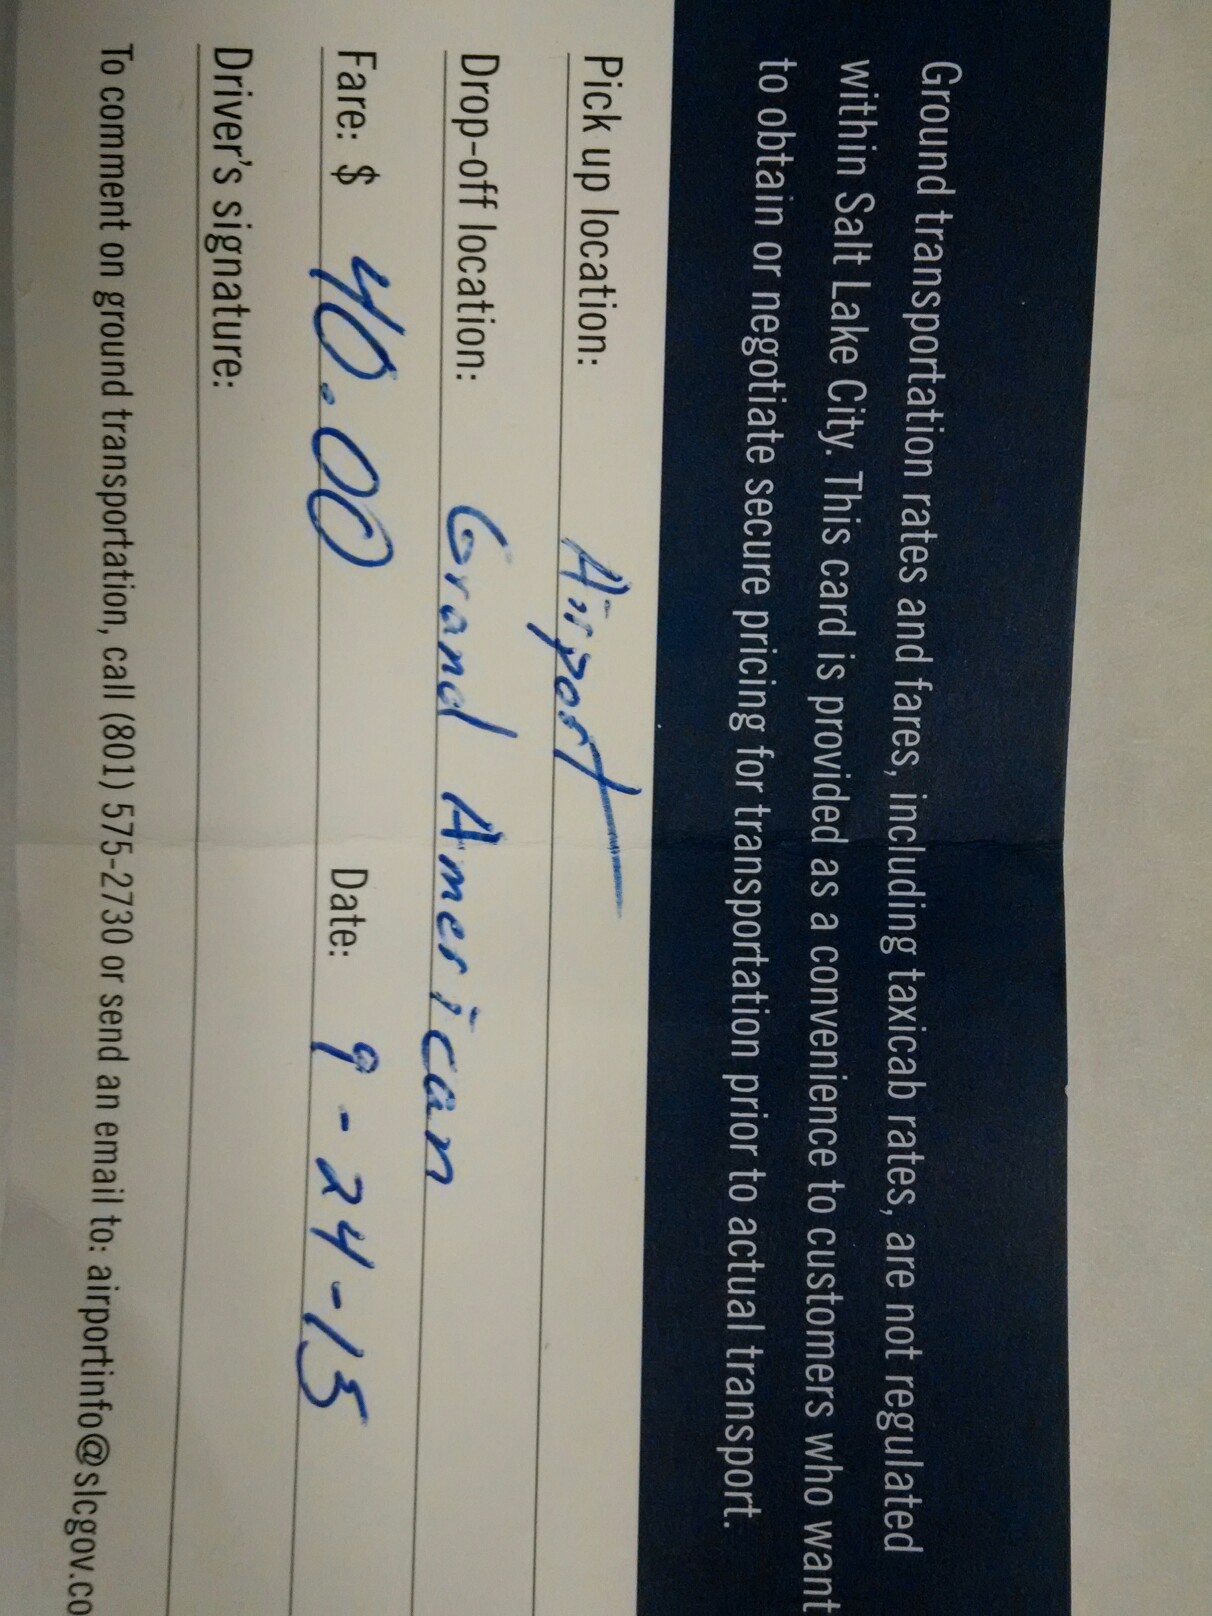 Ground transportation rates and fares, including taxicab rates, are not regulated
within Salt Lake City. This card is provided as a convenience to customers who want
to obtain or negotiate secure pricing for transportation prior to actual transport.
Pick up location: Airport
Drop-off location: Grand American
Fare: $ 40.00 Date: 9-24-15
Driver's signature:
To comment on ground transportation, call (801) 575-2730 or send an email to: airportinfo@slcgov.co